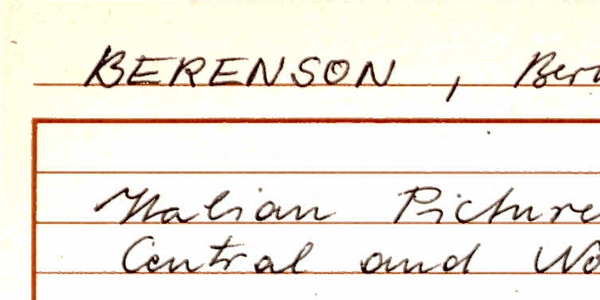 BERENSON, Ber
Italian Picture
Central and No